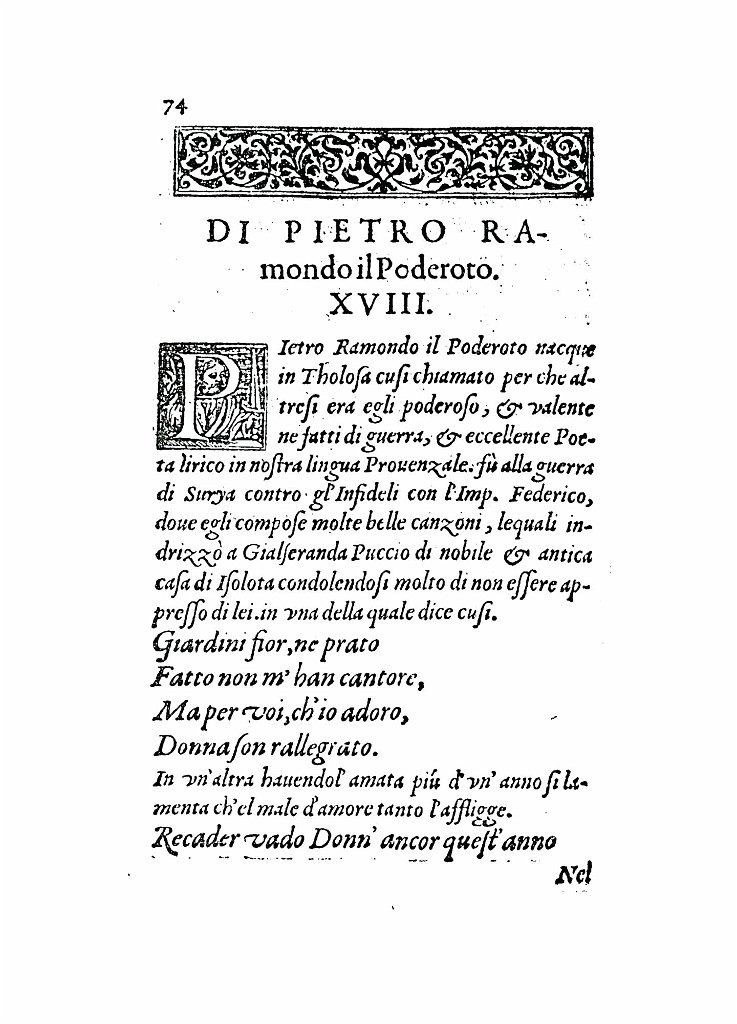 74
DI PIETRO RA-
mondo il Poderoto.
XVIII.
PIetro Ramondo il Poderoto nacque
in Tholoſa cuſi chiamato per che al-
treſi era egli poderoſo, & valente
ne fatti di guerra, & eccellente Poe-
ta lirico in noſtra lingua Prouenzale. fù alla guerra
di Surya contro gl'Infideli con l'Imp. Federico,
doue egli compoſe molte belle canzoni, lequali in-
drizzò a Gialſeranda Puccio di nobile & antica
caſa di Iſolota condolendoſi molto di non eſſere ap-
preſſo di lei. in vna della quale dice cuſi.
Giardini fior, ne prato
Fatto non m' han cantore,
Ma per voi, ch'io adoro,
Donna ſon rallegrato.
In vn'altra hauendol' amata più d' vn' anno ſi la-
menta ch'el male d'amore tanto l'affligge.
Recader vado Donn' ancor queſt'anno
Nel